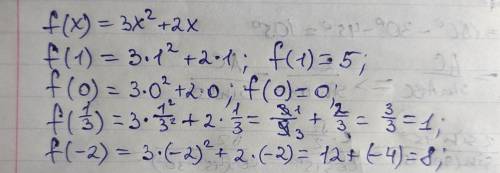 f(x) = 3x² + 2x
f(1) = 3·1² + 2·1; f(1) = 5;
f(0) = 3·0² + 2·0; f(0) = 0;
f(1/3) = 3·1²/3² + 2·1/3 = 3̸ 1/9̸ 3 + 2/3 = 3/3 = 1;
f(-2) = 3·(-2)² + 2·(-2) = 12 + (-4) = 8;